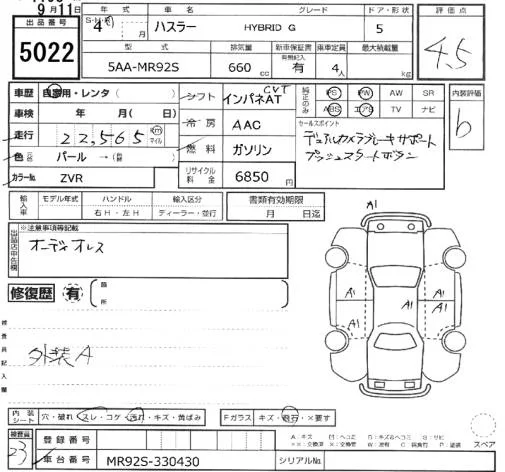 9月11日
出品番号
5022
年式 車名 グレード ドア・形状
S・H・R 4 月 ハスラー HYBRID G 5
型式 排気量 新車保証書 乗車定員 最大積載量
有無記入
5AA-MR92S 660 cc 有 4人 kg
評価点
4.5
車歴 自家用・レンタ( )
車検 年 月( 日)
走行 22,565 km マイル
色 パール →(
カラーNo. ZVR
シフト インパネAT CVT
冷房 AAC
燃料 ガソリン
リサイクル料金 6850円
純正のみ
PS PW AW SR
ABS エアB TV ナビ
セールスポイント
デュアルカメラブレーキサポート
プッシュスタートボタン
内装評価
b
輸入車 モデル年式 ハンドル 輸入区分
右H・左H ディーラー・並行
書類有効期限
月 日迄
出品店申告欄
※注意事項等記載
オーディオレス
修復歴 有 箇所
検査員記入欄
外装A
A1
A1 A1 A1
内装シート 穴・破れ スレ・コゲ 汚れ・キズ・黄ばみ
Fガラス キズ・飛石・×要す
A:キズ
スペア
検査員
23
登録番号
車台番号 MR92S-330430 シリアルNo.